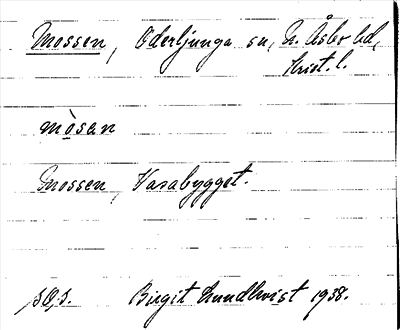 Mossen, Oderljunga sn, N. Åsbo hd,
Krist. l.
mòsan
Mossen, Vasabygget.
Birgit Lundkvist 1938.